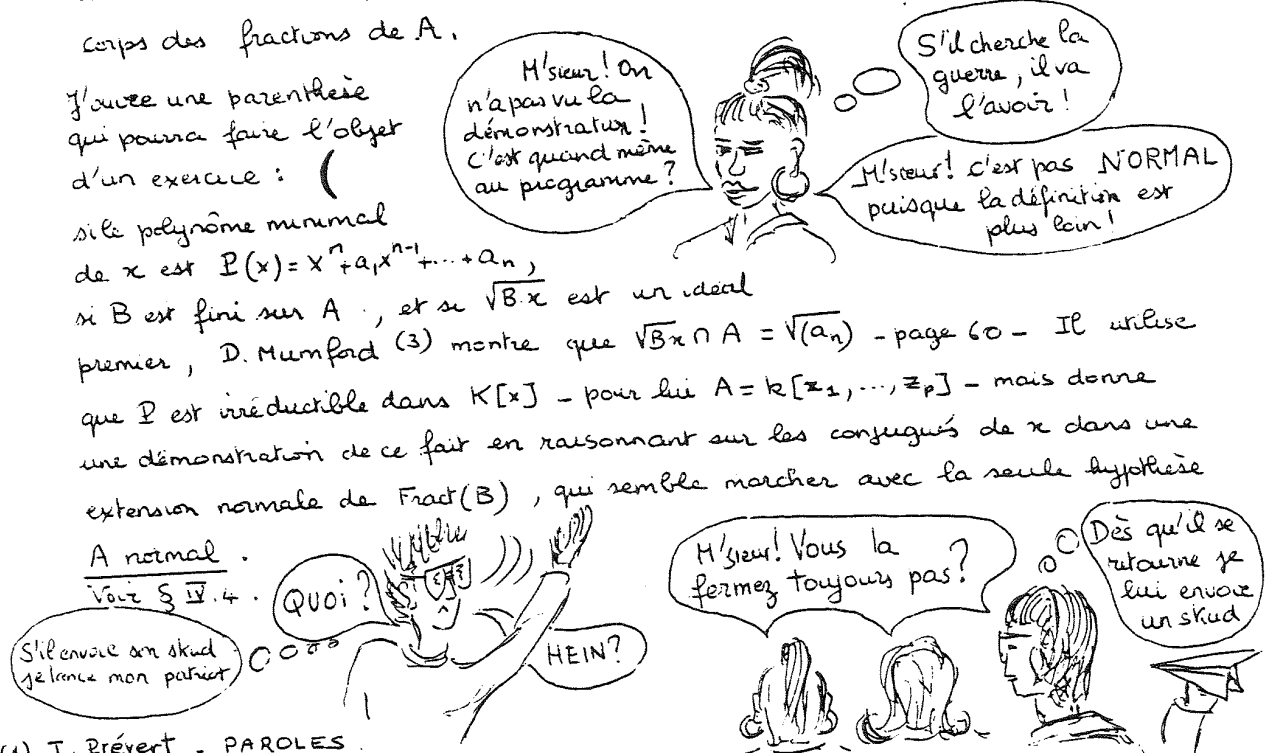 corps des fractions de A.
J'ouvre une parenthèse
qui pourra faire l'objet
d'un exercice : (
si le polynôme minimal
de x est P(x) = x^n + a_1 x^{n-1} + ... + a_n,
si B est fini sur A, et si √B.x est un idéal
premier, D. Mumford (3) montre que √Bx ∩ A = √(a_n) - page 60 - Il utilise
que P est irréductible dans K[x] - pour lui A = k[z_1, ..., z_p] - mais donne
une démonstration de ce fait en raisonnant sur les conjugués de x dans une
extension normale de Fract(B), qui semble marcher avec la seule hypothèse
A normal.
Voir § IV.4.
M'sieur! On
n'a pas vu la
démonstration!
C'est quand même
au programme?
S'il cherche la
guerre, il va
l'avoir!
M'sieur! C'est pas NORMAL
puisque la définition est
plus loin!
QUOI?
S'il envoie son skud
je lance mon patriot
HEIN?
M'sieur! Vous la
fermez toujours pas?
Dès qu'il se
retourne je
lui envoie
un skud
(1) J. Prévert - PAROLES